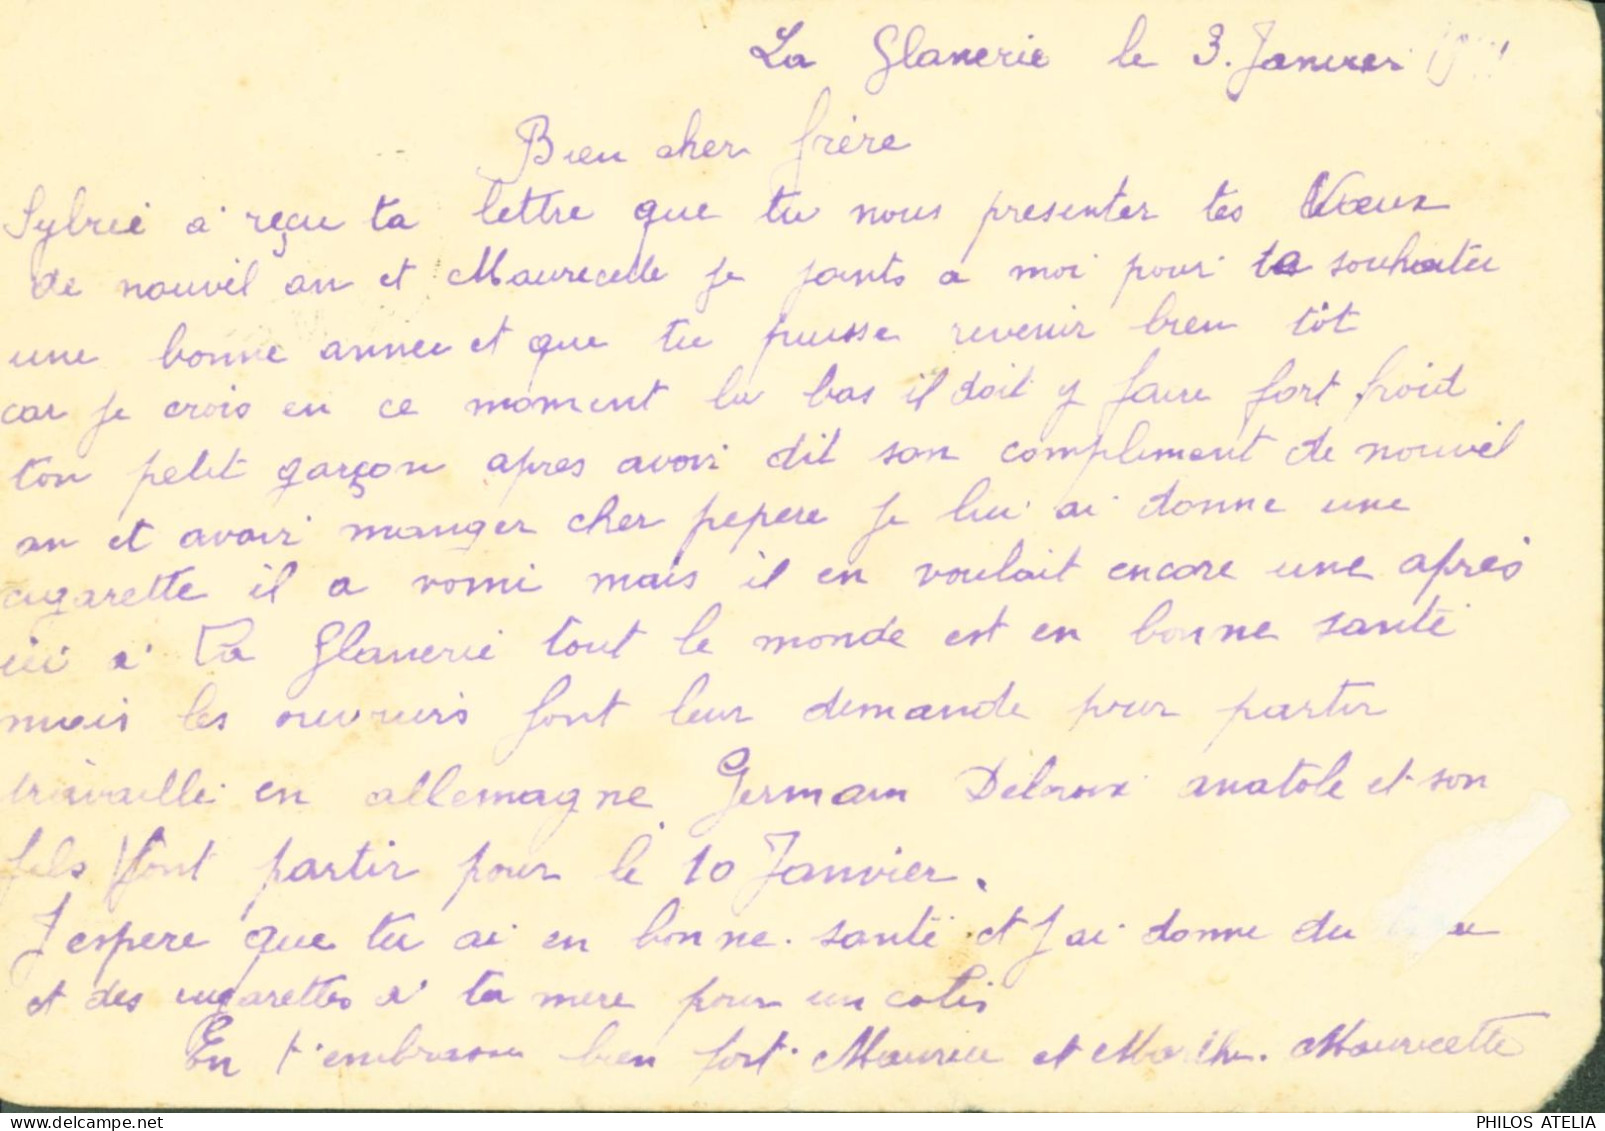 La Glanerie le 3. Janvier
Bien cher frère
Sylvie à reçu ta lettre que tu nous presenter tes Vœux
de nouvel an et Mauricette je joints a moi pour te souhaiter
une bonne annee et que tu puisse revenir bien tôt
car je crois en ce moment la bas il doit y faire fort froid
ton petit garçon apres avoir dit son compliment de nouvel
an et avoir manger cher pepere je lui ai donne une
cigarette il a vomi mais il en voulait encore une après
ici à La Glanerie tout le monde est en bonne santé
mais les ouvriers font leur demande pour partir
travaille en allemagne Germain Delaroix anatole et son
fils font partir pour le 10 Janvier.
J'espere que tu ai en bonne santé et J'ai donne du
et des cigarettes à ta mere pour un colis
En t'embrasse bien fort. Maurice et Marthe. Mauricette
PHILOS ATELIA
https://www.delcampe.net